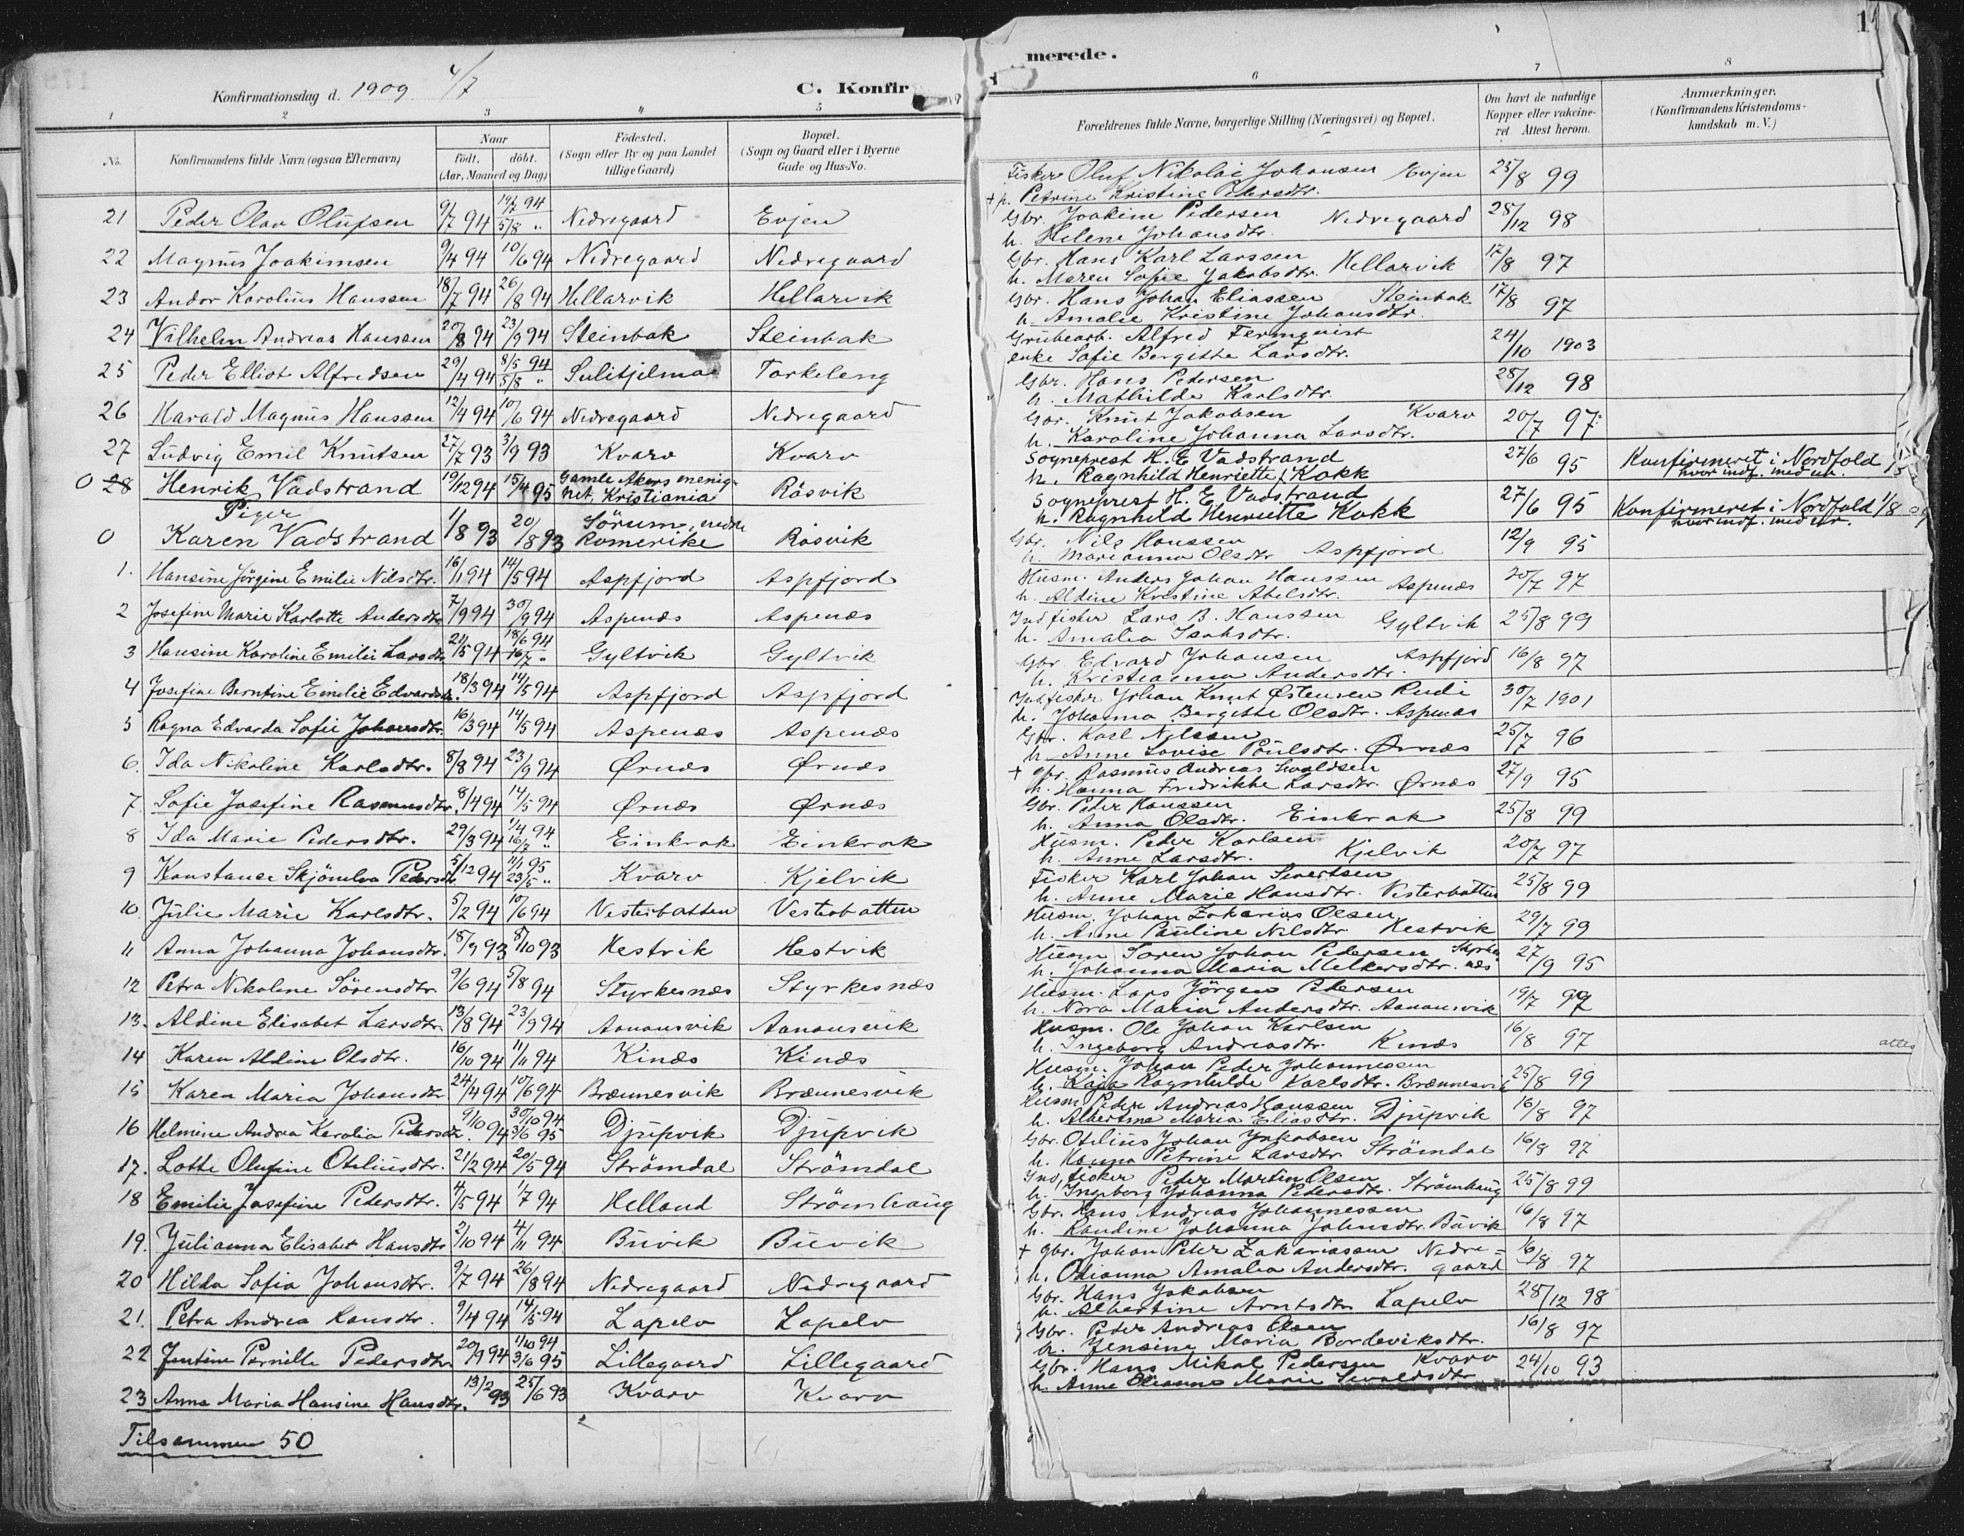 Konfirmationsdag d. 1909 4/7
C. Konfir
merede.
1 2 3 4 5 6 7 8
No.
Konfirmandens fulde Navn (ogsaa Efternavn)
Naar
født. døbt.
(Aar, Maaned og Dag)
Fødested.
(Sogn eller By og paa Landet
tillige Gaard)
Bopæl.
(Sogn og Gaard eller i Byerne
Gade og Hus-No.
Forældrenes fulde Navne, borgerlige Stilling (Næringsvei) og Bopæl.
Om havt de naturlige
Kopper eller vakcine-
ret Attest herom.
Anmærkninger.
(Konfirmandens Kristendoms-
kundskab m. V.)
21 Peder Olav Olufsen 9/7 94 14/7 94 5/8 " Nedregaard Evjen
22 Magnus Joakimsen 9/4 94 10/6 94 Nedregaard Nedregaard
23 Andor Karolius Hanssen 18/7 94 26/8 94 Hellarvik Hellarvik
24 Vilhelm Andreas Hanssen 20/8 94 23/9 94 Steinbak Steinbak
25 Peder Elliot Alfredsen 29/4 94 8/5 94 5/8 " Sulitjelma Torkeleng
26 Harald Magnus Hanssen 12/4 94 10/6 94 Nedregaard Nedregaard
27 Ludvig Emil Knutsen 27/7 93 3/9 93 Kvarv Kvarv
0 28 Henrik Vadstrand 19/12 94 15/4 95 Gamle Akers menig-
het, Kristiania Røsvik
Piger
0 Karen Vadstrand 1/8 93 20/8 93 Sørum, nedre
Romerike Røsvik
1. Hansine Jørgine Emilie Nilsdtr. 16/1 94 14/5 94 Aspfjord Aspfjord
2 Josefine Marie Karlotte Andersdtr 7/9 94 30/9 94 Aspenæs Aspenæs
3 Hansine Karoline Emilie Larsdtr 21/5 94 18/6 94 16/7 " Gyltvik Gyltvik
4 Josefine Berntine Emilie Edvardsdtr. 18/3 94 14/5 94 Aspfjord Aspfjord
5 Ragna Edvarda Sofie Johansdtr. 16/3 94 14/5 94 Aspenæs Aspenæs
6. Ida Nikoline Karlsdtr. 8/8 94 23/9 94 Ørnæs Ørnæs
7 Sofie Josefine Rasmusdtr. 8/4 94 14/5 94 Ørnæs Ørnæs
8 Ida Marie Pedersdtr. 29/3 94 1/4 94 16/7 " Einkrok Einkrok
9 Konstanse Skjömlva Pedersdtr 5/12 94 11/1 95 23/5 " Kvarv Kjelvik
10. Julie Marie Karlsdtr. 5/2 94 10/6 94 Vesterbotten Vesterbotten
11 Anna Johanna Johansdtr. 18/9 93 8/10 93 Hestvik Hestvik
12 Petra Nikoline Sörensdtr 9/6 94 5/8 94 Styrkesnæs Styrkesnæs
13. Aldine Elisabet Larsdtr. 13/8 94 23/9 94 Aanansvik Aanansvik
14 Karen Aldine Olsdtr. 16/10 94 11/11 94 Kinæs Kinæs
15 Karen Maria Johansdtr 24/4 94 10/6 94 Brænnesvik Brænnesvik
16 Helmine Andrea Karolia Pedersdtr. 9/10 94 30/10 94 3/6 95 Djupvik Djupvik
17. Lotte Olufine Otiliusdtr. 21/2 94 20/5 94 Strömdal Strömdal
18 Emilie Josefine Pedersdtr. 4/5 94 1/7 94 Helland Strömhaug
19. Julianna Elisabet Hansdtr 2/10 94 4/11 94 Buvik Buvik
20 Hilda Sofia Johansdtr. 9/7 94 26/8 94 Nedregaard Nedregaard
21. Petra Andrea Hansdtr. 9/4 94 14/5 94 Lapelv Lapelv
22 Jentine Pernille Pedersdtr 20/9 94 1/10 94 3/6 95 Lillegaard Lillegaard
23 Anna Maria Hansine Hansdtr. 13/2 93 25/6 93 Kvarv Kvarv
Tilsammen 50
Fisker Oluf Nikolai Johansen Evjen 25/8 99
+ h. Petrine Kristine Pedersdtr.
Gbr. Joakim Pedersen Nedregaard 28/12 98
h. Helene Johansdtr.
Gbr. Hans Karl Larssen 17/8 97
h. Maren Sofie Jakobsdtr. Hellarvik
Gbr. Hans Johan Eliassen Steinbak 17/8 97
h. Amalie Kristine Johansdtr.
Grubearb. Alfred Fermqvist 24/10 1903
enke Sofie Bergitte Larsdtr.
Gbr. Hans Pedersen 28/12 98
h. Mathilde Karlsdtr.
Gbr. Knut Jakobsen Kvarv 20/7 97
h. Karoline Johanna Larsdtr.
Sogneprest H. E. Vadstrand 27/6 95 Konfirmeret i Nordfold
h. Ragnhild Henriette f. Kokk hvor indf. med nr.
Sogneprest H. E. Vadstrand 27/6 95 Konfirmeret i Nordfold 1/8 09
h. Ragnhild Henriette Kokk hvor indf. med nr.
Gbr. Nils Hanssen 12/9 95
h. Marianna Olsdtr Aspfjord
Husm. Anders Johan Hanssen Aspenæs 20/7 97
h. Aldine Kristine Abelsdtr.
Ind fisker Lars B. Hanssen Gyltvik 25/8 99
h. Amalia Isaksdtr.
Gbr. Edvard Johansen Aspfjord 16/8 97
h. Kristianna Andersdtr.
Ind. fisker Johan Knut Østensen Rudi 30/7 1901
h. Johanna Bergitte Olsdtr. Aspenæs
Gbr. Karl Nilssen 25/7 96
h. Anne Lovise Poulsdtr. Ørnæs
+ gbr. Rasmus Andreas Sivaldsen 27/9 95
h. Hanna Fredrikke Larsdtr. Ørnæs
Gbr. Peter Hanssen 25/8 99
h. Anna Olsdtr. Einkrok
Husm. Peder Karlsen 20/7 97
h. Anne Larsdtr. Kjelvik
Fisker Karl Johan Sivertsen 25/8 99
h. Anne Marie Hansdtr. Vesterbotten
Husm. Johan Zakarias Olsen 29/7 99
h. Anne Pauline Nilsdtr Hestvik
Husm Sören Johan Pedersen Styrkes 27/9 95
h. Johanna Maria Melkersdtr. næs
Husm. Lars Jörgen Pedersen 19/7 99
h. Nora Maria Andersdtr. Aanansvik
Husm. Ole Johan Karlsen 16/8 97
h. Ingeborg Andreasdtr. Kinæs attes
Husm. Johan Peder Johannessen 25/8 99
h. Kaja Ragnhilde Karlsdtr. Brænnesvik
Husm Peder Andreas Hanssen 16/8 97
h. Albertine Maria Eliasdtr. Djupvik
Gbr. Otilius Johan Jakobsen 16/8 97
h. Hanna Petrine Larsdtr. Strömdal
Ind. fisker Peder Martin Olsen 25/8 99
h. Ingeborg Johanna Pedersdtr. Strömhaug
Gbr. Hans Andreas Johannessen 16/8 97
h. Randine Johanna Johnsdtr. Buvik
+ gbr. Johan Peter Zakariassen Nedre- 16/8 97
h. Odianna Amalia Andersdtr. gaard
Gbr. Hans Jakobsen 28/12 98
h. Albertine Arntsdtr. Lapelv
Gbr. Peder Andreas Olsen 16/8 97
h. Jensine Maria Bordeviksdtr.
Gbr. Hans Mikal Pedersen Kvarv 24/10 93
h. Anne Oleanna Marie Sivaldsdtr